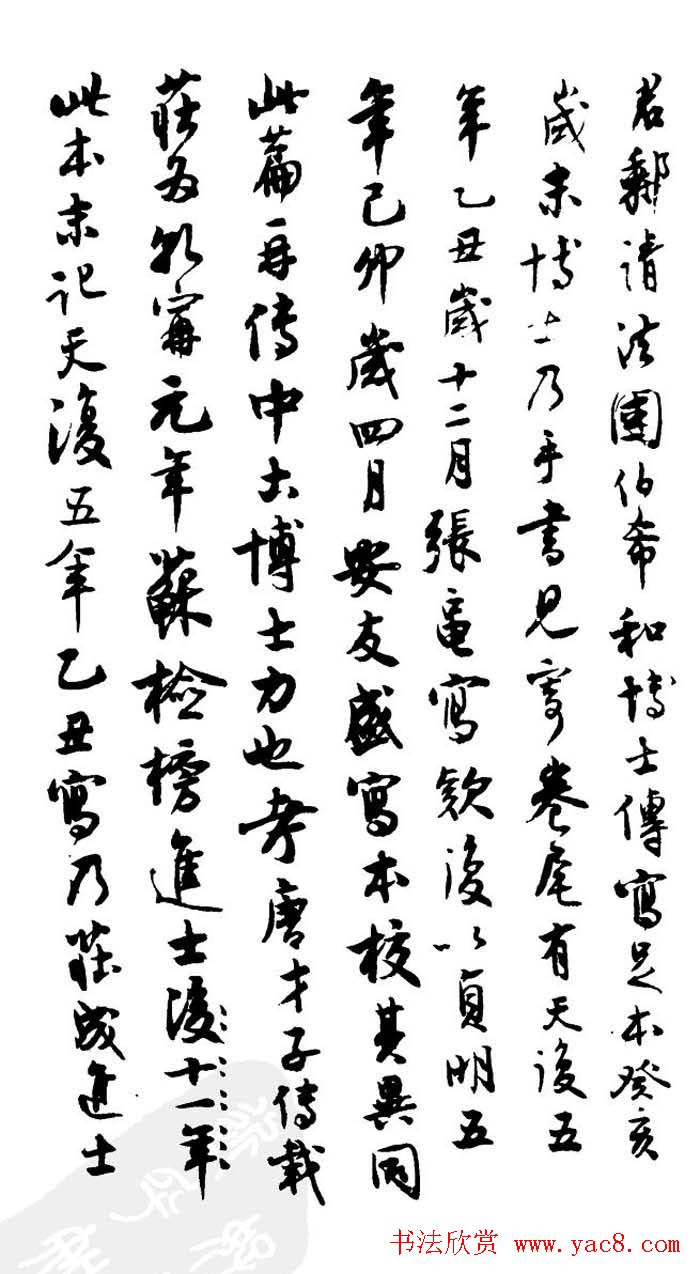 君郵請法國伯希和博士傳寫足本癸亥
歲末博士乃手書見寄卷尾有天復五
年乙丑歲十二月張龜寫款後以貞明五
年己卯歲四月安友盛寫本校其異同
此篇再傳中土博士力也考唐才子傳載
莊為乾寧元年蘇檢榜進士後十一年
此本末記天復五年乙丑寫乃莊成進士
书法欣赏 www.yac8.com